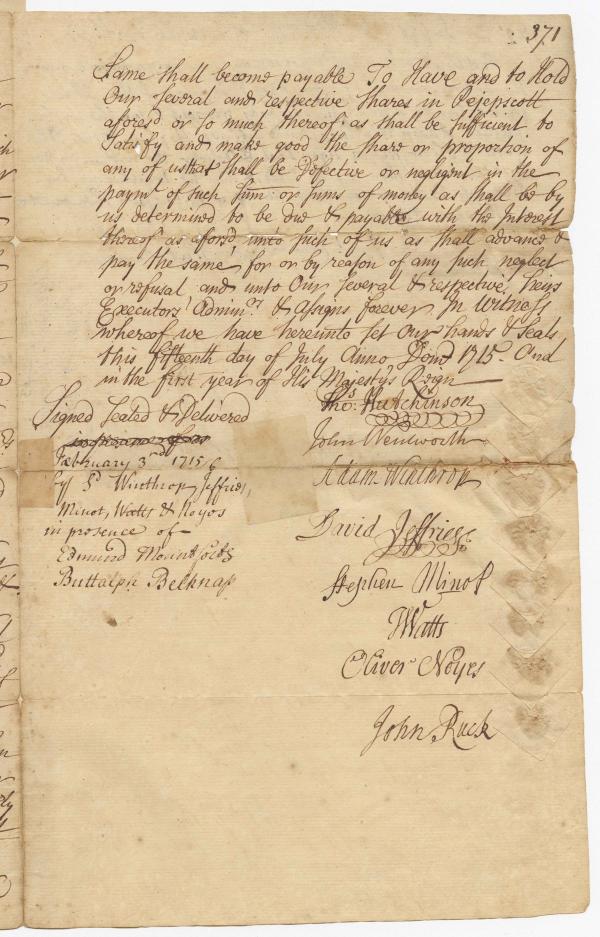 371
Same shall become payable To Have and to Hold
Our Several and respective Shares in Pejepscott
aforesd or so much thereof as shall be Sufficient to
Satisfy and make good the share or proportion of
any of us that shall be Defective or negligent in the
paymt of such Sum or Sums of money as shall be by
us determined to be due & payable with the Interest
thereof as aforsd, unto such of us as shall advance &
pay the same for or by reason of any such neglect
or refusal and unto Our Several & respective Heirs
Executors Adminrs & Assigns forever In Witness
whereof we have hereunto set Our hands & Seals
this fifteenth day of July Anno Domi 1715. And
in the first year of His Majestys Reign
Signed Sealed & Delivered
February 3rd 1715/6
By Sd Winthrop, Jeffries,
Minot, Watts & Noyes
in presence of
Edmund Mountfort
Buttalph Belknap
Thos. Hutchinson
John Wentworth
Adam Winthrop
David Jeffries
Stephen Minot
J Watts
Oliver Noyes
John Ruck